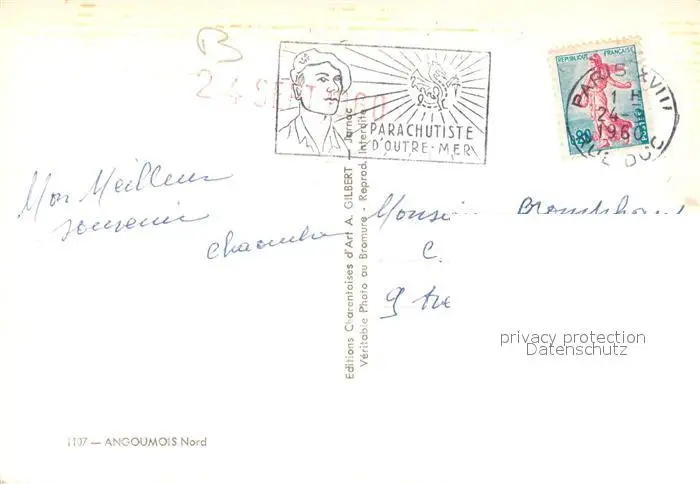 B
24 SEPT 1960
PARACHUTISTE
D'OUTRE-MER
REPUBLIQUE FRANÇAISE
0,20
PARIS XVIII
1 H
24-
1960
RUE DUC
Mon Meilleur
souvenir
Monsi
C.
9
Editions Charentaises d'Art A. GILBERT — Jarnac
Véritable Photo au Bromure - Reprod. Interdite
privacy protection
Datenschutz
1107 — ANGOUMOIS Nord